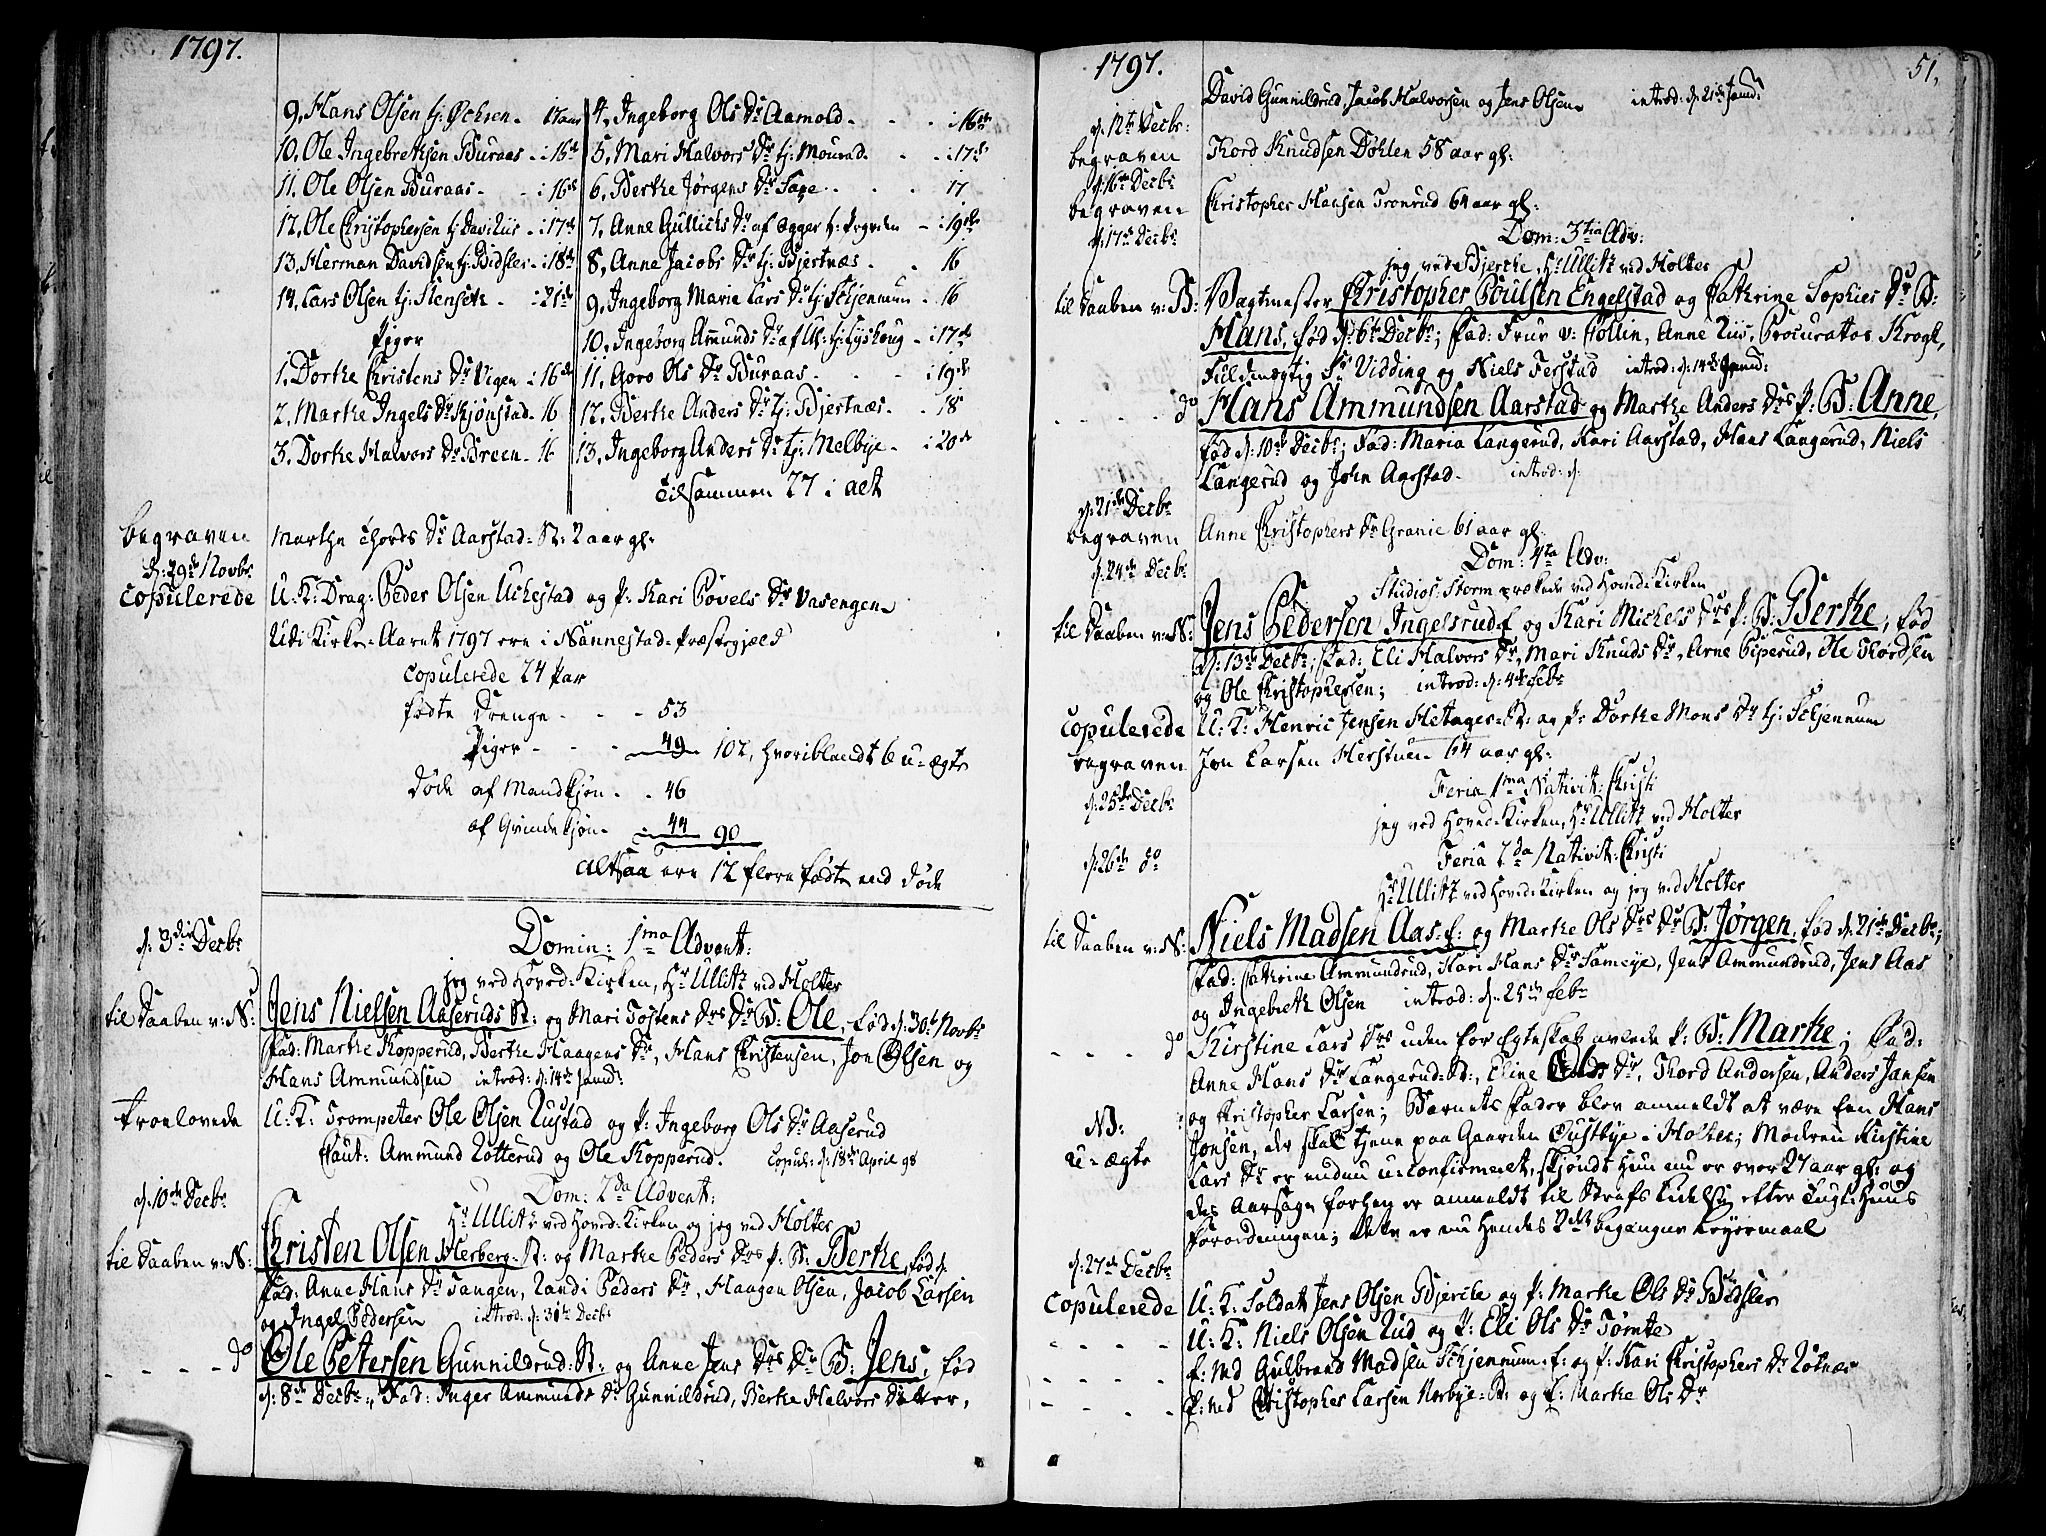 1797.
9, Hans Olsen tj: Øchren - 17 aar
10, Ole Ingebretsen Buraas - : 16
11, Ole Olsen Buraas - - : 16
12, Ole Christophersen tj: - : 17
13, Herman Davidsen tj: Bidsler - : 18
14, Lars Olsen tj: Stenset - : 21
Piger
1, Dorthe Christens Dr Vigen : 16
2, Marthe Ingels Dr Kjønstad - 16
3, Dorthe Halvors Dr Breen - 16
4, Ingeborg Ols Dr Aamold - - - : 16
5, Mari Halvors Dr tj: Mourad - - : 17
6, Berthe Jørgens Dr - - - 17
7, Anne Gullichs Dr af Egger tj: - : 19
8, Anne Jacobs Dr tj: Bjertnæs - - 16
9, Ingeborg Marie Lars Dr tj: Schjennum - 16
10, Ingeborg Ammunds Dr af tj: Lyshoug - : 17
11, Goro Ols Dr Buraas - - - : 19
12, Berthe Anders Dr tj: Bjertnæs - - 18
13, Ingeborg Anders Dr tj: Melbye - : 20
Tilsammen 27 i alt
begraven Marthe Thords Dr Aarstad-St: 2 aar gl.
d: 29de Novbr
copulerede U: K: Drag: Peder Olsen Uchestad og P: Kari Povels Dr Vasengen
Udi Kirke-Aaret 1797 ere i Nannestad-Præstegjeld
copulerede 24 Par
fødte Drenge - - - 53
Piger - - - 49 102, hvoriblandt 6 u-ægte
Døde af Mandkjøn - - 46
af Qvindekjøn - - 44 90
altsaa ere 12 flere fødte end døde
d: 3die Decbr Domin: 1ma Advent:
jeg ved Hoved-Kirken, Hr Ullitz ved Holter
til Daaben v: N: Jens Nielsen Aaseruds St: og Mari Tostens Drs Dr B: Ole, fød d: 30t Novbr
Fad: Marthe Kopperud, Berthe Haagens Dr, Hans Christensen, Jon Olsen og
Hans Ammundsen introd: d: 14de Janud:
Troelovede U: K: Trompeter Ole Olsen Rustad og P: Ingeborg Ols Dr Aaserud
Caut: Ammund Rotterud og Ole Kopperud. Copul: d: 18de April 98
d: 10de Decbr Dom: 2da Advent:
Hr Ullitz ved Hoved-Kirken og jeg ved Holter
til Daaben v: N: Christen Olsen Herberg-St: og Marthe Peders Drs P: B: Berthe, fød d:
Fad: Anne Hans Dr Tangen, Randi Peders Dr, Haagen Olsen, Jacob Larsen
og Ingel Pedersen introd: d: 31te Decbr
- - - do Ole Petersen Gunnildrud-St: og Anne Jens Drs Dr B: Jens, fød
d: 8de Decbr, Fad: Inger Ammunds Dr Gunnildrud, Berthe Halvors Datter,
1797. 51.
David Gunnildrud, Jacob Halvorsen og Jens Olsen introd: d: 21de Janud:
d: 12te Decbr:
begraven Thord Knudsen Døhlen 58 aar gl:
d: 16de Decbr
begraven Christopher Hansen Tronrud 64 aar gl:
d: 17de Decbr Dom: 3tia Adv:
jeg ved Bjerche, Hr Ullitz ved Holter
til Daaben v: B: Vagtmester Christopher Poulsen Engelstad og Cathrine Sophies Dr B:
Hans, fød d: 6te Decbr; Fad: Frue v: Hollin, Anne Riis, Procurator Krogl,
Fuldmægtig Sr Vidding og Niels Ferstad introd: d: 14de Janud:
- - - do Hans Ammundsen Aarstad og Marthe Anders Drs P: B: Anne,
fød d: 10de Decbr; Fad: Maria Langerud, Kari Aarstad, Hans Langerud, Niels
Langerud og John Aarstad. introd: d:
d: 21de Decbr
begraven Anne Christophers Dr Granie 61 aar gl.
d: 24de Decbr Dom: 4ta Adv:
Studios: Storm prækede ved Hoved-Kirken
til Daaben v: N: Jens Pedersen Ingelsrud f og Kari Michels Drs P: B: Berthe, fød
d: 13de Decbr; Fad: Eli Halvors Dr, Mari Knuds Dr, Arne Piperud, Ole Thordsen
og Ole Christophersen; introd: d: 4de Febr
copulerede U: K: Henric Jensen Hetager-St: og P: Dorthe Mons Dr tj: Schjennum
begraven Jon Larsen Herstuen 64 aar gl:
d: 25de Decbr Feria 1ma Nativit: Christi
jeg ved Hoved-Kirken, Hr Ullitz ved Holter
d: 26de do Feria 2da Nativit: Christi
Hr Ullitz ved Hoved-Kirken og jeg ved Holter
til Daaben v: N: Niels Madsen Aas-f: og Marthe Ols Drs Dr B: Jørgen, fød d: 21de Decbr;
Fad: Cathrine Ammundrud, Kari Hans Dr Sameje, Jens Ammundrud, Jens Aas
og Ingebreth Olsen introd: d: 25de Febr
- - - do Kirstine Lars Drs uden for Egteskab avlede P: B: Marthe; Fad:
Anne Hans Dr Langerud-St:, Eline Dr, Thord Andersen, Anders Jansen
og Christopher Larsen; Barnets Fader blev anmeldt at være Een Hans
NB: Jonsen, der skal tjene paa Gaarden Oustbye i Holter; Moderen Kirstine
u-ægte Lars Dr er endnu u-confirmeret, skjøndt hun nu er over 27 aar gl: og
des Aarsage forhen er anmeldt til Strafs Lidelse efter Tugt-Huus
Forordningen; dette er nu hendes 2det begangne Leyermaal
d: 27de Decbr
copulerede U: K: Soldat Jens Olsen Bjerche og P: Marthe Ols Dr Bidsler
- - - - U: K: Niels Olsen Rud og P: Eli Ols Dr Tømte
- - - - E: Md Gulbrand Madsen Schjennum-f: og P: Kari Christophers Dr Rotnæs
- - - - E: Md Christopher Larsen Norbye-St: og E: Marthe Ols Dr